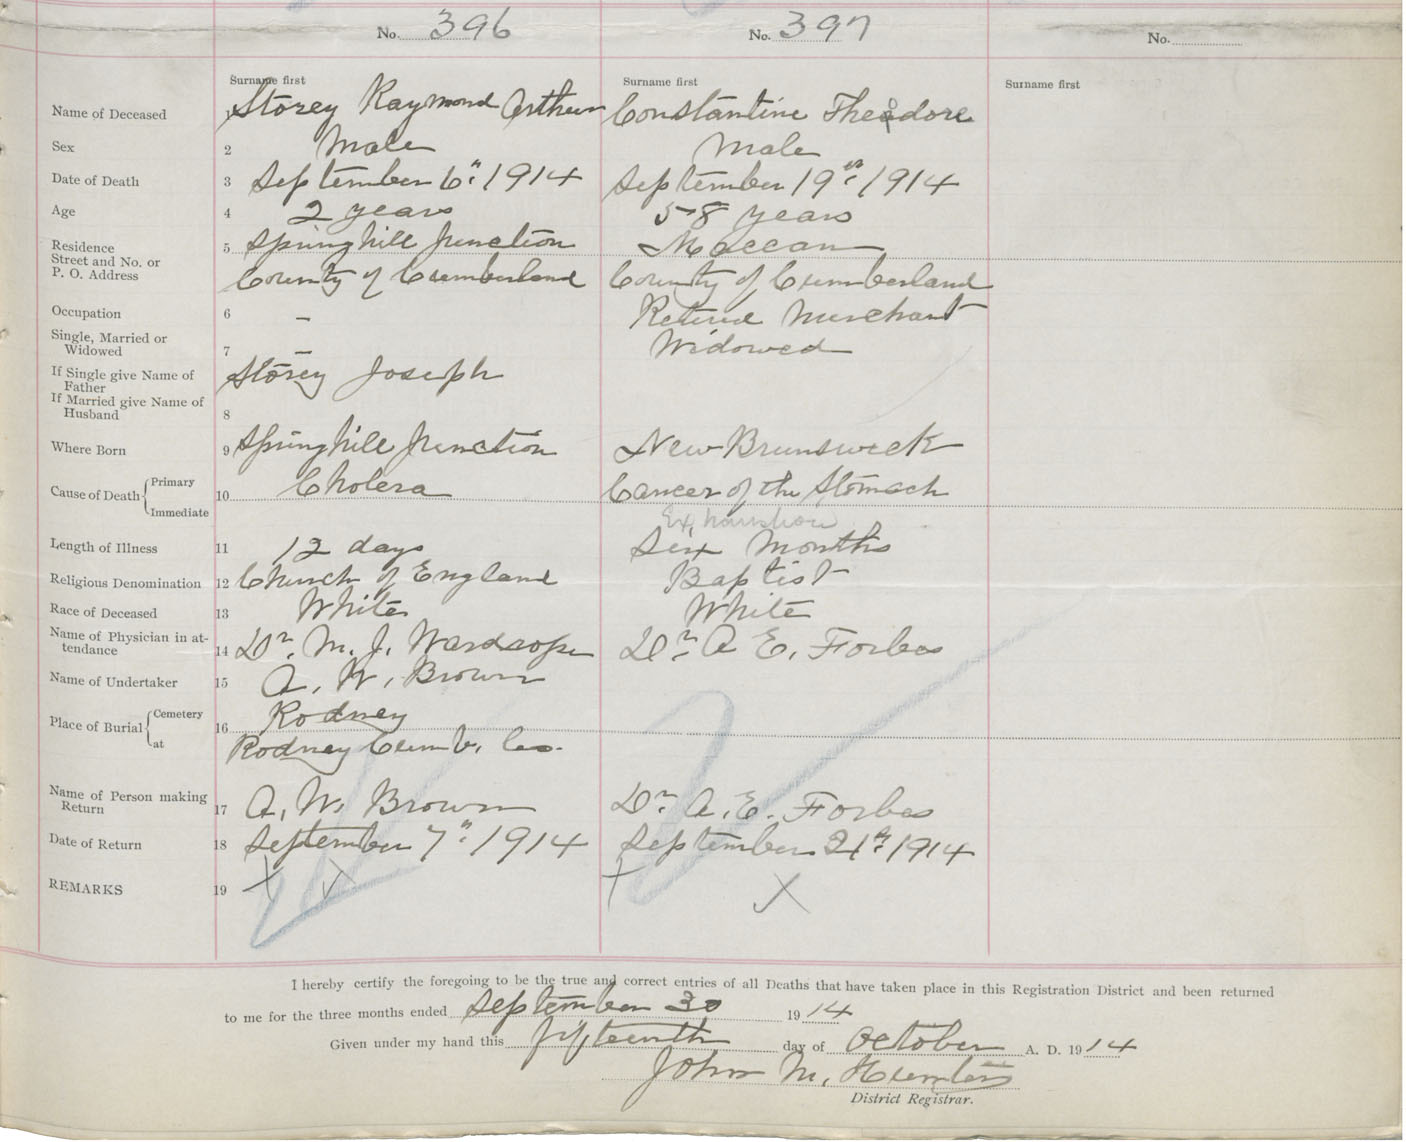 No. 396 No. 397 No.
Surname first Surname first Surname first
Name of Deceased 1 Storey Raymond Arthur Constantine Theodore
Sex 2 Male Male
Date of Death 3 September 6th 1914 September 19th 1914
Age 4 2 years 58 years
Residence 5 Springhill Junction Maccan
Street and No. or
P. O. Address County of Cumberland County of Cumberland
Occupation 6 – Retired Merchant
Single, Married or
Widowed 7 – Widowed
If Single give Name of
Father Storey Joseph
If Married give Name of
Husband 8
Where Born 9 Springhill Junction New Brunswick
Cause of Death { Primary 10 Cholera Cancer of the Stomach
Immediate Exhaustion
Length of Illness 11 12 days Six Months
Religious Denomination 12 Church of England Baptist
Race of Deceased 13 White White
Name of Physician in at-
tendance 14 Dr. M. J. Wardrope Dr. A. E. Forbes
Name of Undertaker 15 A. W. Brown
Place of Burial { Cemetery 16 Rodney
at Rodney Cumb. Co.
Name of Person making
Return 17 A. W. Brown Dr. A. E. Forbes
Date of Return 18 September 7th 1914 September 21st 1914
REMARKS 19 X X X X
I hereby certify the foregoing to be the true and correct entries of all Deaths that have taken place in this Registration District and been returned
to me for the three months ended September 30 1914
Given under my hand this fifteenth day of October A. D. 1914
John M. Hunter
District Registrar.